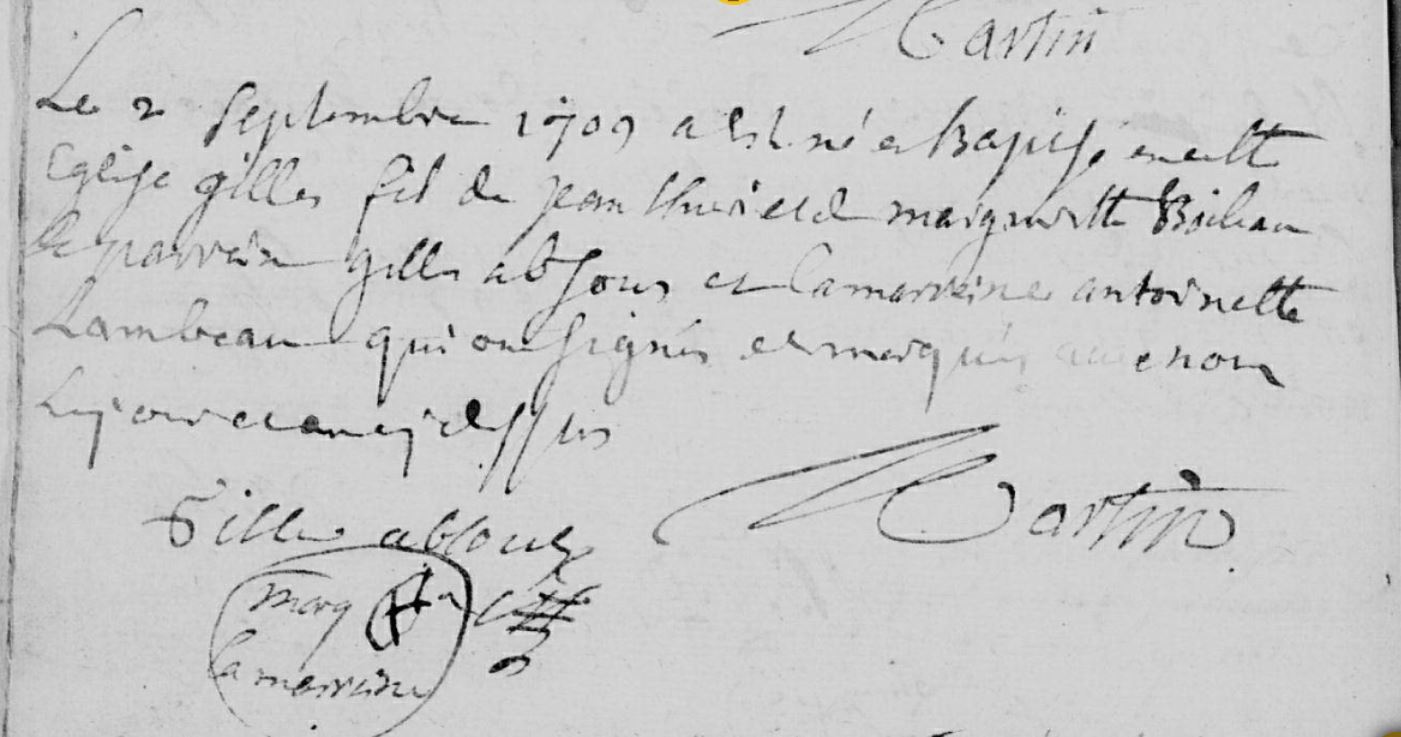 Martin
Le 2 Septembre 1709 a est né et baptisé en cette
Eglise gilles fils de jean et de margueritte Boileau
le parrein gilles absous et la marreine antoinette
Lambeau qui ont signés et marqués avec nous
les jour et an cy dessus
Gille absoux
Martin
marq de
la marreine